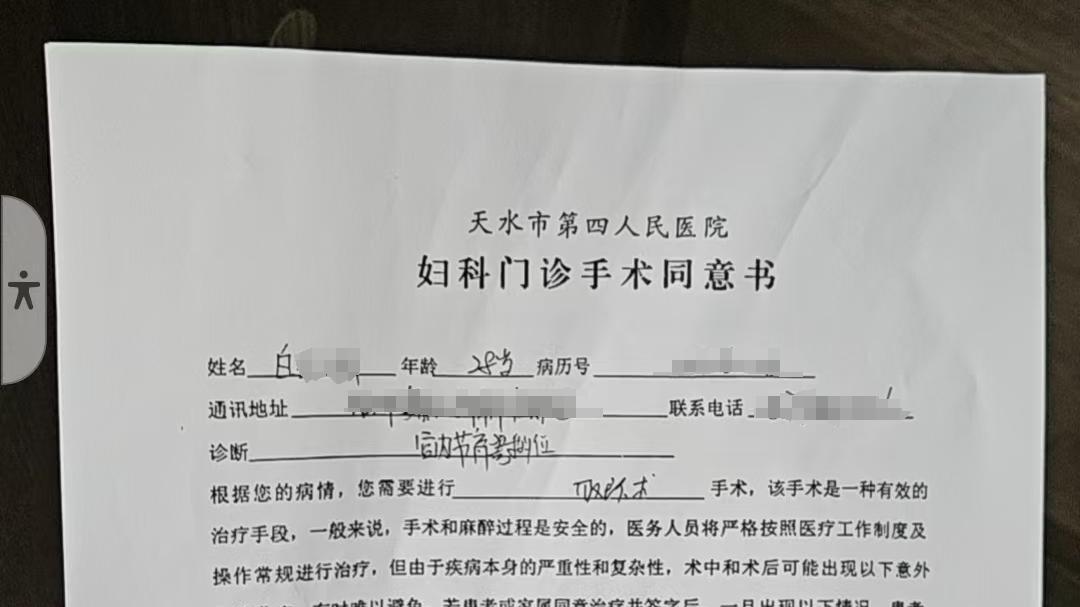 天水市第四人民医院
妇科门诊手术同意书
姓名 白 年龄 28岁 病历号
通讯地址 联系电话
诊断 宫内节育器
根据您的病情，您需要进行 取环术 手术，该手术是一种有效的
治疗手段，一般来说，手术和麻醉过程是安全的，医务人员将严格按照医疗工作制度及
操作常规进行治疗，但由于疾病本身的严重性和复杂性，术中和术后可能出现以下意外